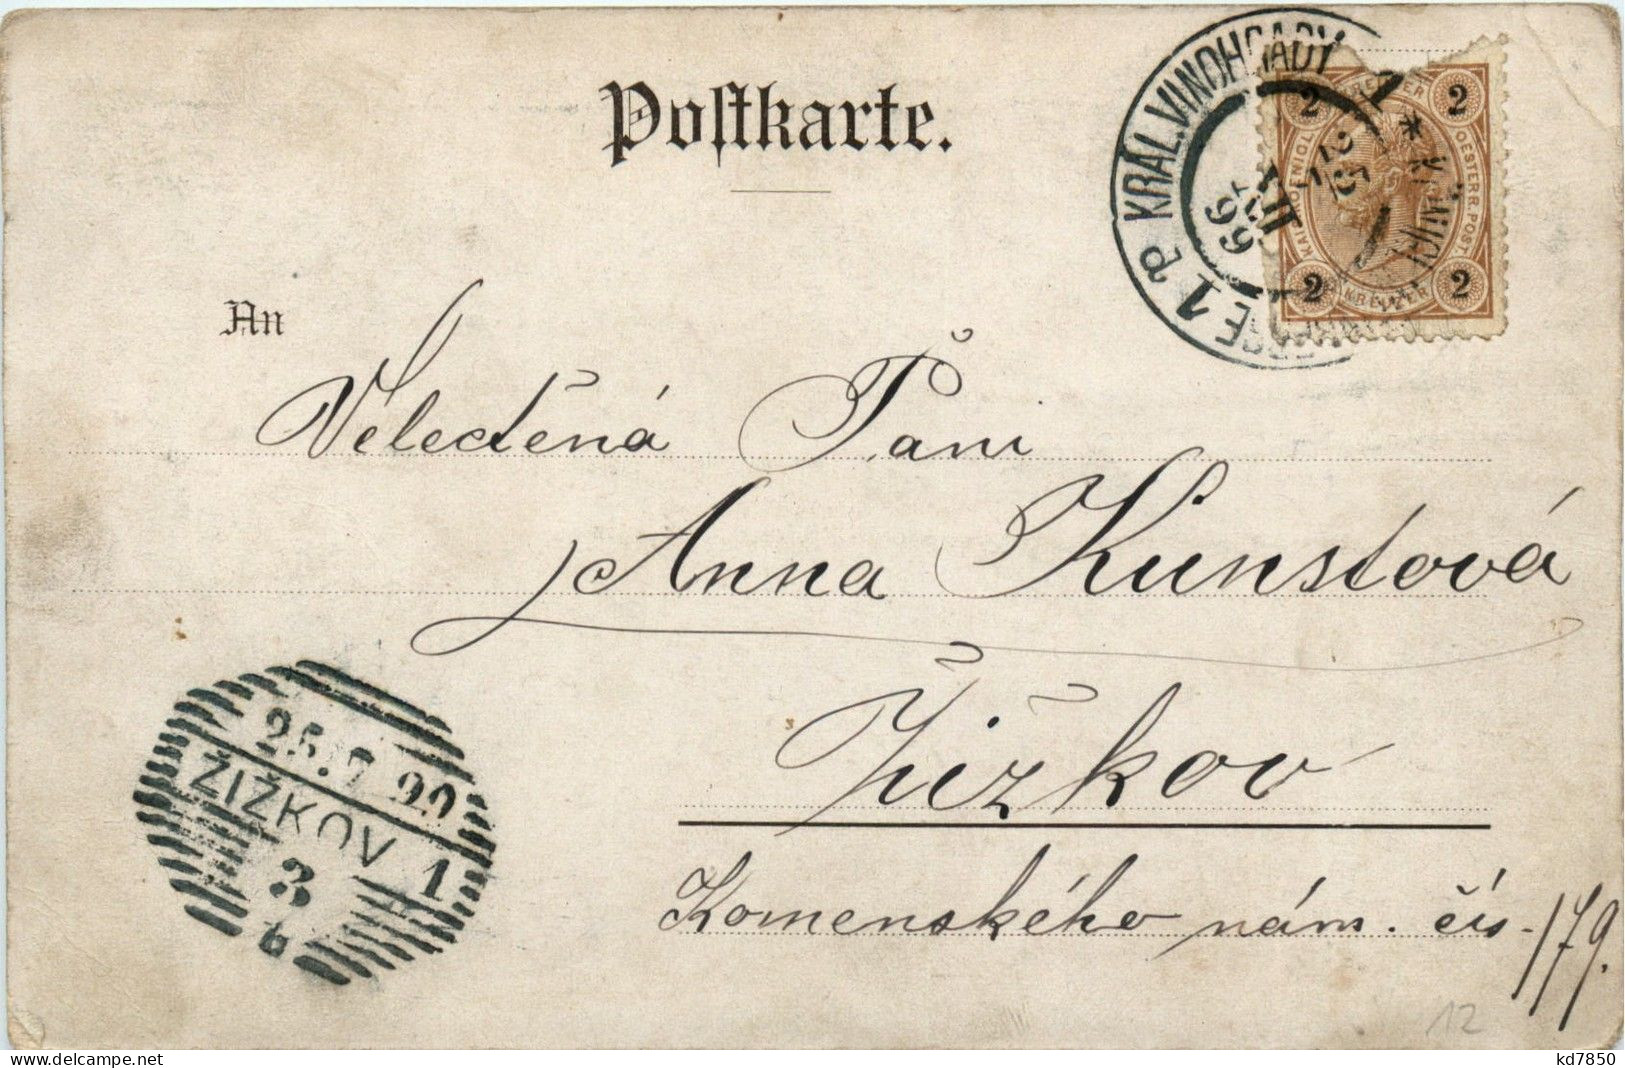 Postkarte.
KRÁL. VINOHRADY 1
25
VII
99
2 KREUZER 2
KAIS. KOENIGL. OESTERR. POST
2 KREUZER 2
1 P
An
Velectěná Paní
Anna Kunstová
Žižkov
Komenského nám. čís. 179.
25.7 99
ŽIŽKOV 1
3
b
12
delcampe.net
kd7850